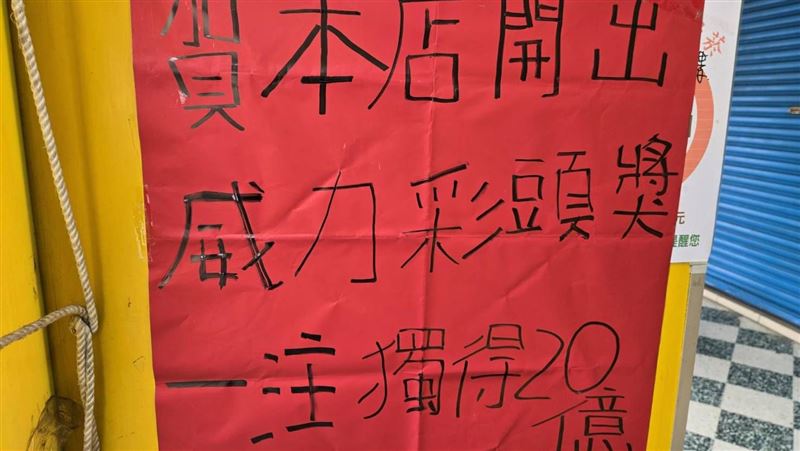 賀本店開出
威力彩頭獎
一注獨得20億
菸
元
醒您